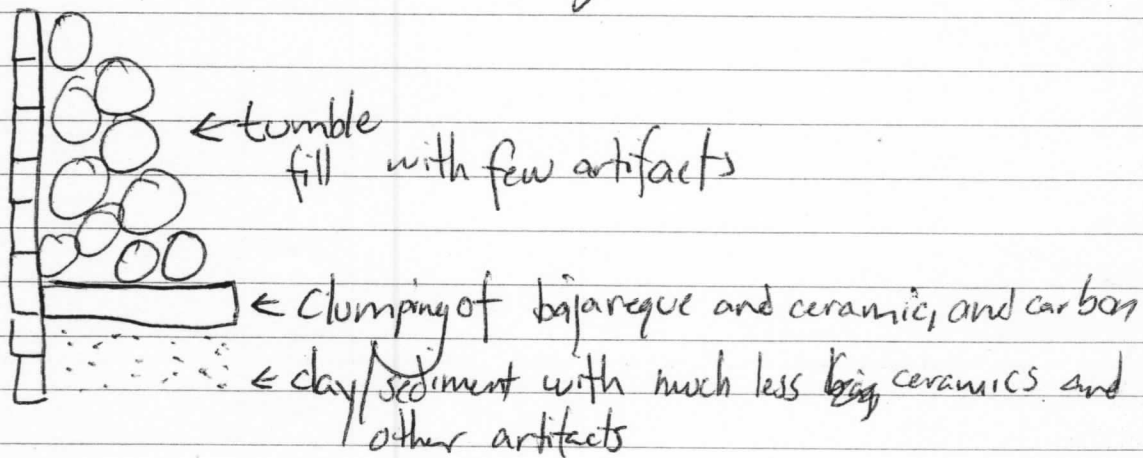 ← tumble
fill with few artifacts
← Clumping of bajareque and ceramic, and carbon
← clay/sediment with much less big ceramics and
other artifacts